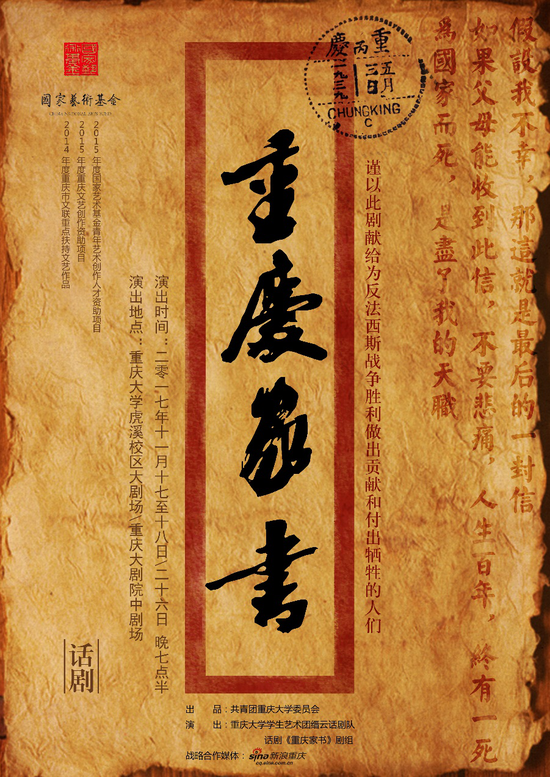 假設我不幸 那這就是最后的一封信
如果父母能收到此信，不要悲痛，人生百年，終有一死
爲國家而死，是盡了我的天職
重慶
丙
五月
三日
一九三九
CHUNGKING
C
谨以此剧献给为反法西斯战争胜利做出贡献和付出牺牲的人们
重慶家書
國家藝術基金
國家藝術基金
CHINA NATIONAL ARTS FUND
2015年度国家艺术基金青年艺术创作人才资助项目
2015年度重庆文艺创作资助项目
2014年度重庆市文联重点扶持文艺作品
演出时间：二零一七年十一月十七至十八日/二十六日 晚七点半
演出地点：重庆大学虎溪校区大剧场/重庆大剧院中剧场
话剧
出 品：共青团重庆大学委员会
演 出：重庆大学学生艺术团缙云话剧队
话剧《重庆家书》剧组
战略合作媒体：sina新浪重庆
cq.sina.com.cn